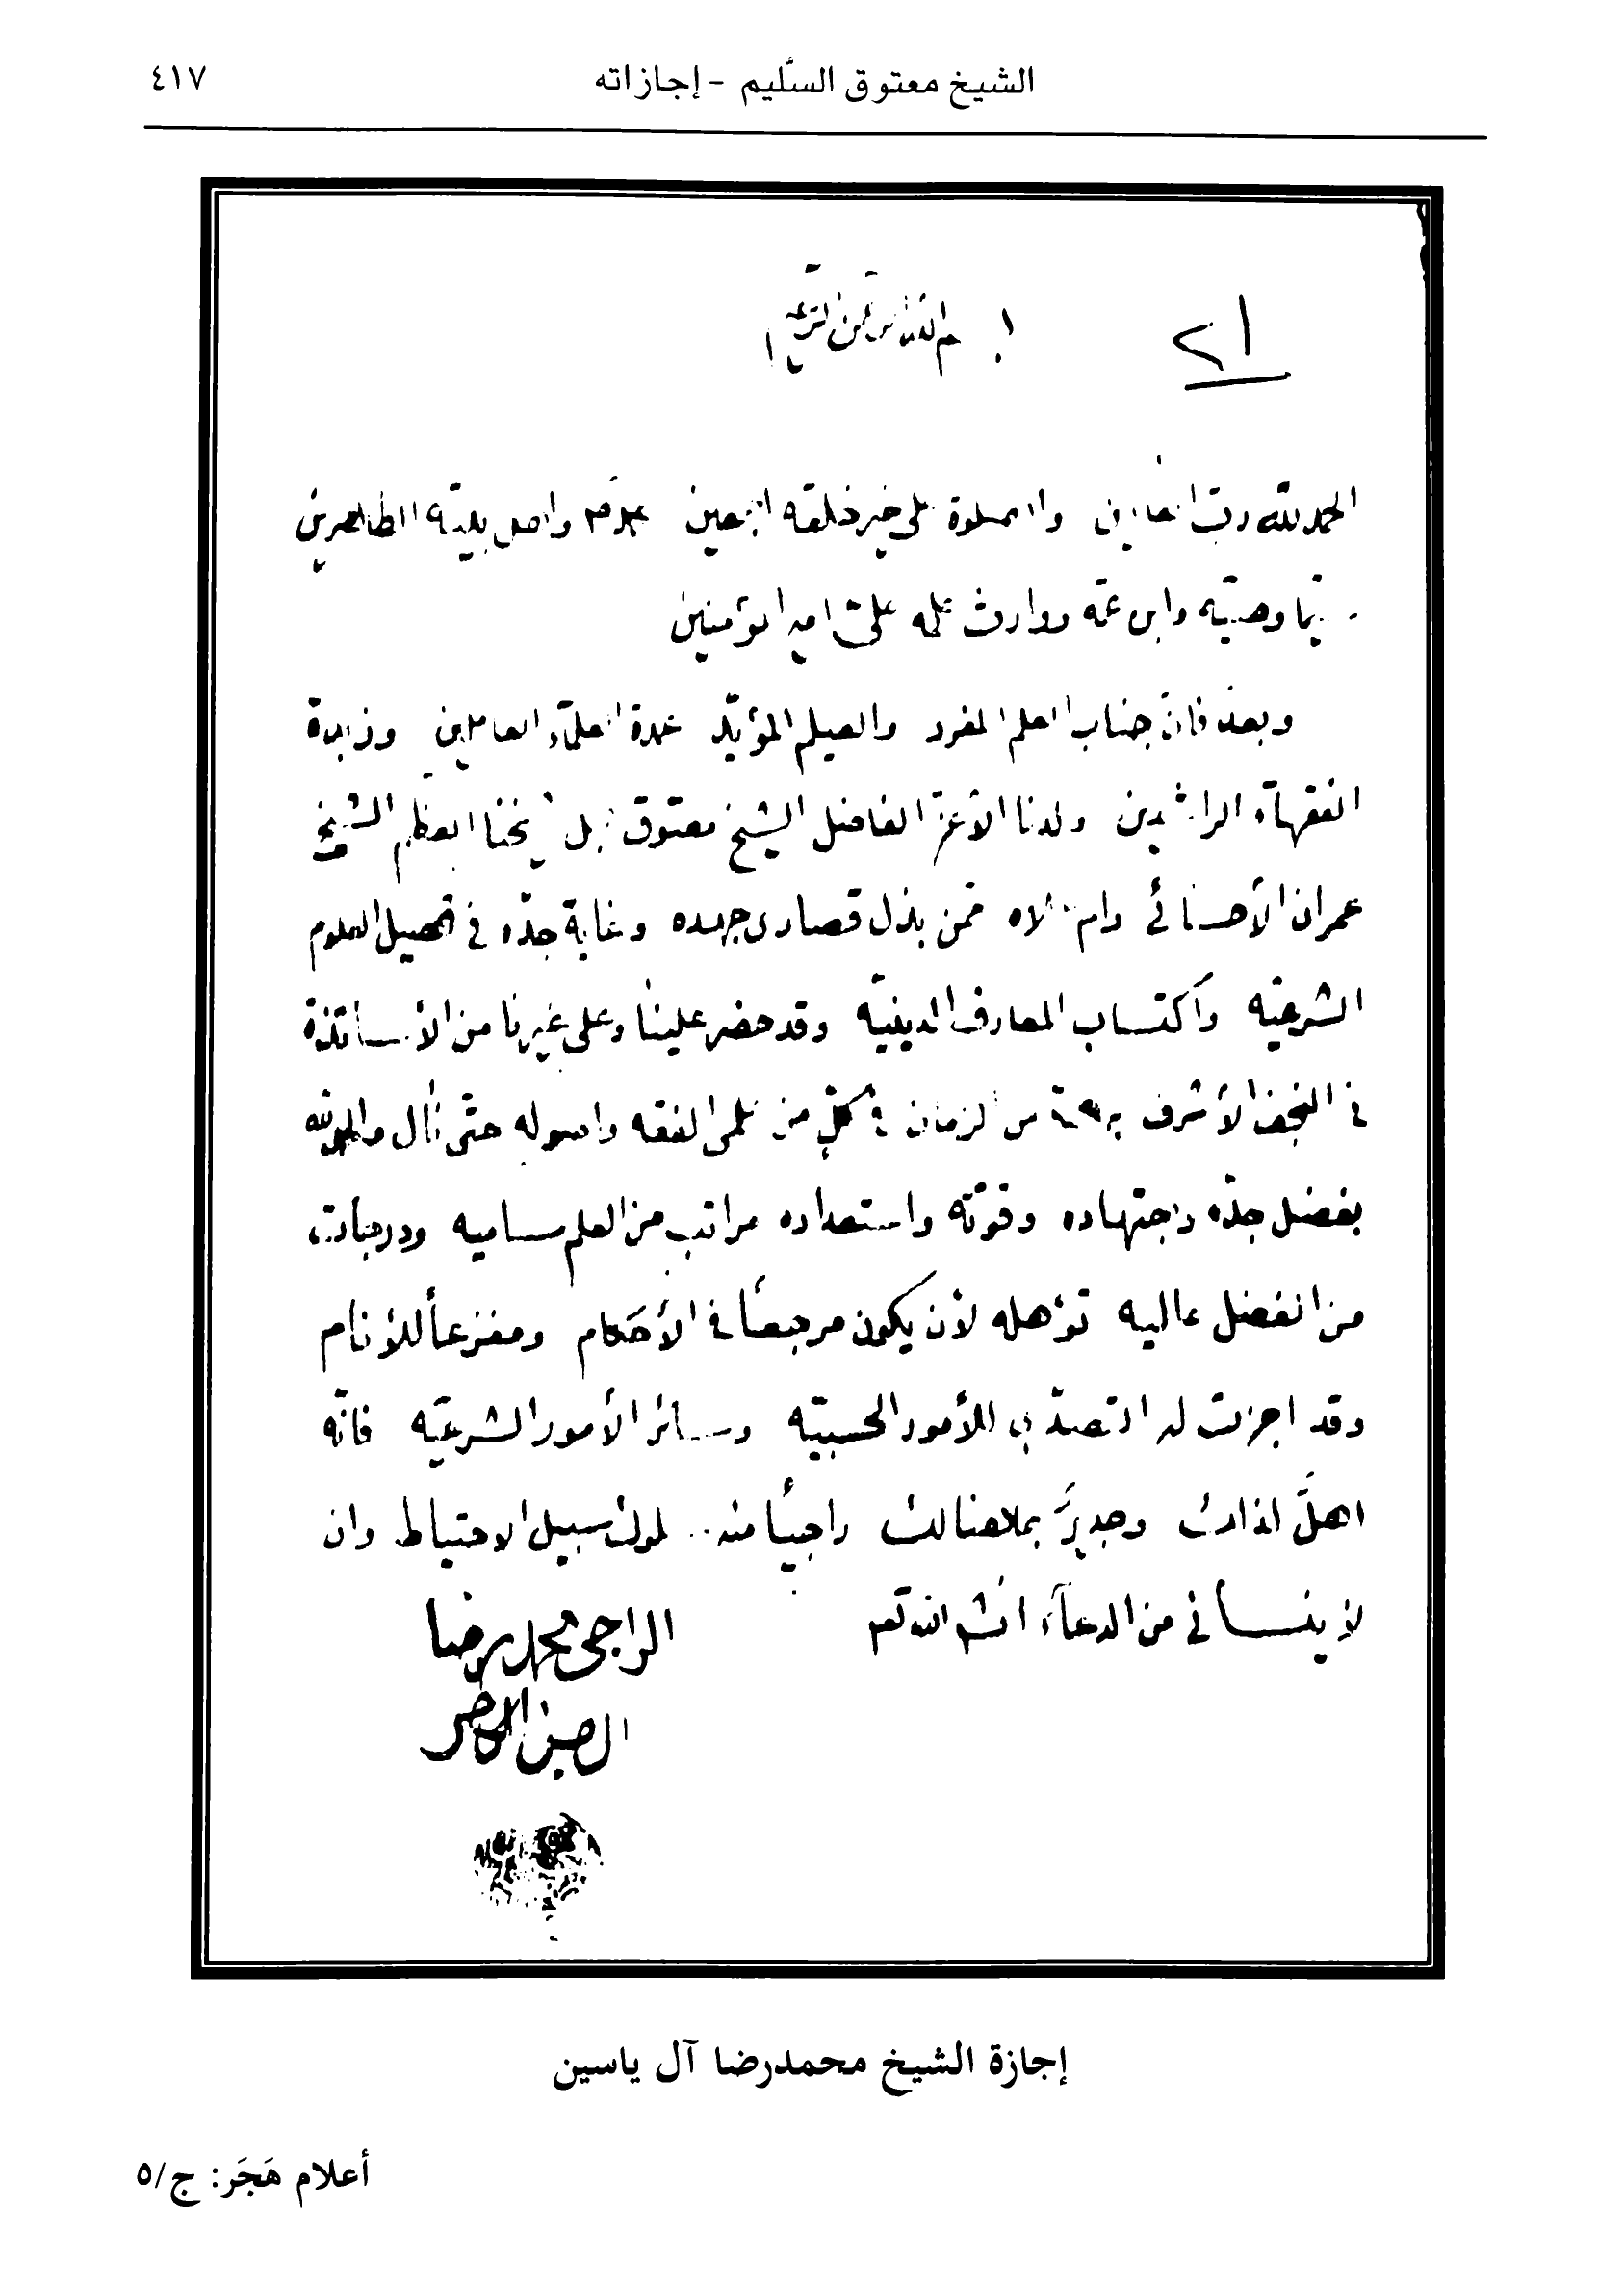 الشيخ معتوق السّليم - إجازاته ٤١٧
بسم الله الرحمن الرحيم
الحمد لله رب العالمين والصلوة على خير خلقه اجمعين محمّد واهل بيته الطاهرين
سيّما وصيّه وابن عمّه ووارث علمه عليّ امير المؤمنين
وبعد فانّ جناب العلم المفرد والعيلم المؤيّد عمدة العلمآء العاملين وزبدة
الفقهآء الراشدين ولدنا الأعزّ الفاضل الشيخ معتوق نجل شيخنا المعظم الشيخ
عمران الأحسائي دام علاه ممّن بذل قصارى جهده وغاية جدّه في تحصيل العلوم
الشرعيّه وأكتساب المعارف الدينيّه وقد حضر علينا وعلى غيرنا من الأساتذة
في النجف الأشرف برهة من الزمان في كلّ من علمى الفقه واصوله حتّى نال والحمد لله
بفضل جدّه واجتهاده وقوّته واستعداده مراتب من العلم ساميه ودرجات
من الفضل عاليه تؤهله لأن يكون مرجعاً في الأحكام ومفزعاً للأنام
وقد اجزت له التصدّي للأمور الحسبيّه وسائر الأمور الشرعيّه فانّه
اهلٌ لذلك وجديرٌ بما هنالك راجياً منه سلوك سبيل الاحتياط وان
لا ينساني من الدعآء انشاء الله تعالى
الراجي محمد رضا
آل يسن
إجازة الشيخ محمدرضا آل ياسين
أعلام هَجَر: ج/٥